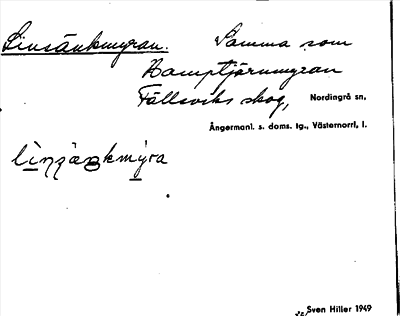 Linsänkmyran. Samma som
Kamptjärnmyran
Fällsviks skog, Nordingrå sn,
Ångermanl. s. doms. tg., Västernorrl, l.
Sven Hiller 1949